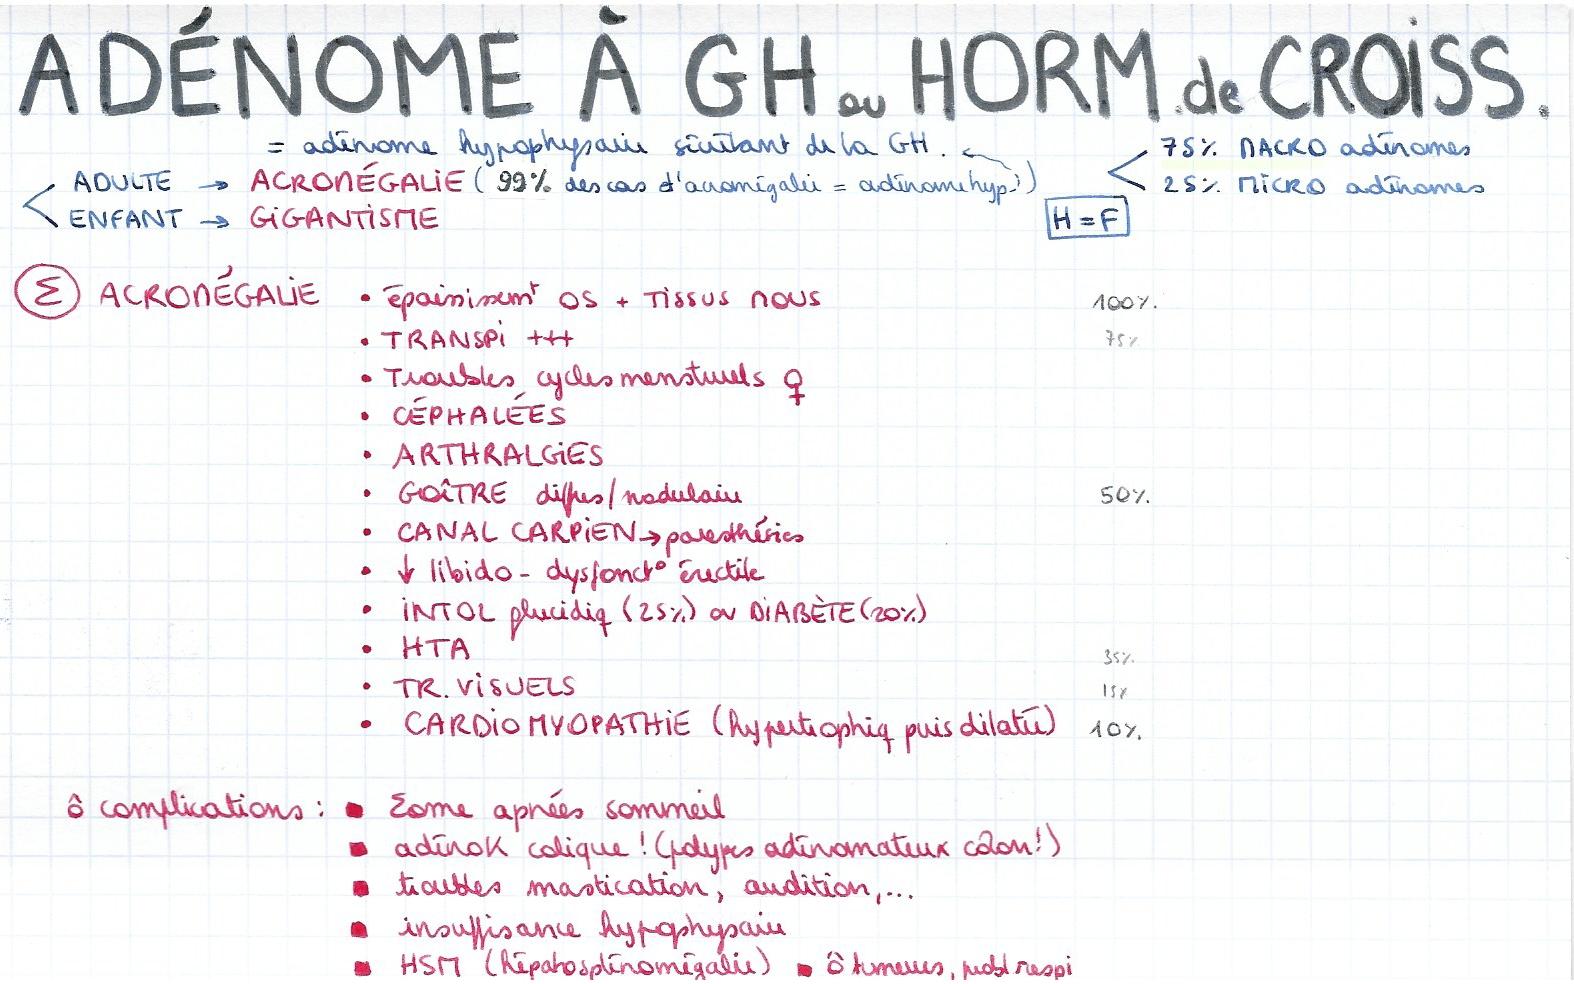 ADÉNOME À GH ou HORM. de CROISS.
= adénome hypophysaire sécrétant de la GH. 75% MACRO adénomes
ADULTE → ACROMÉGALIE (99% des cas d'acromégalie = adénome hyp.) 25% MICRO adénomes
ENFANT → GIGANTISME H = F
Σ ACROMÉGALIE • épaississemt OS + TISSUS MOUS 100%.
• TRANSPI +++ 75%
• Troubles cycles menstruels ♀
• CÉPHALÉES
• ARTHRALGIES
• GOÎTRE diffus/nodulaire 50%.
• CANAL CARPIEN → paresthésies
• ↓ libido - dysfonct° érectile
• INTOL glucidiq (25%) ou DIABÈTE (20%)
• HTA 35%.
• TR. VISUELS 15%
• CARDIOMYOPATHIE (hypertrophiq puis dilatée) 10%.
ô complications : ▪ Σome apnées sommeil
▪ adénoK colique ! (polypes adénomateux côlon!)
▪ troubles mastication, audition,...
▪ insuffisance hypophysaire
▪ HSM (hépatosplénomégalie) ▪ ô tumeurs, probl respi